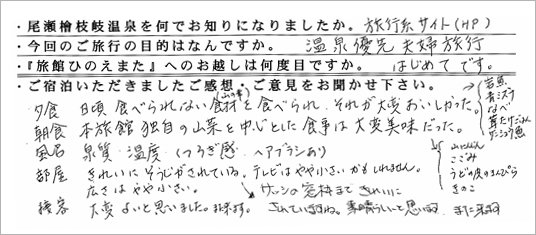 ・尾瀬檜枝岐温泉を何でお知りになりましたか。旅行系サイト(HP)
・今回のご旅行の目的はなんですか。 温泉優先 夫婦旅行
・『旅館ひのえまた』へのお越しは何度目ですか。 はじめて です。
・ご宿泊いただきましたご感想、ご意見をお聞かせ下さい。
夕食 日頃 食べられない食材(山の幸)を食べられ、それが大変おいしかった。
岩魚
なべ
朝食 本旅館独自の山菜を中心とした食事は大変美味だった。
風呂 泉質・温度・くつろぎ感 ・ヘアブラシあり
こごみ
うどの皮のきんぴら
きのこ
部屋 きれいにそうじがされている。テレビはやや小さいかもしれません。
広さはやや小さい。
サッシの窓枠まできれいに
されていますね。素晴らしいと思います。また来ます
接客 大変よいと思いました。